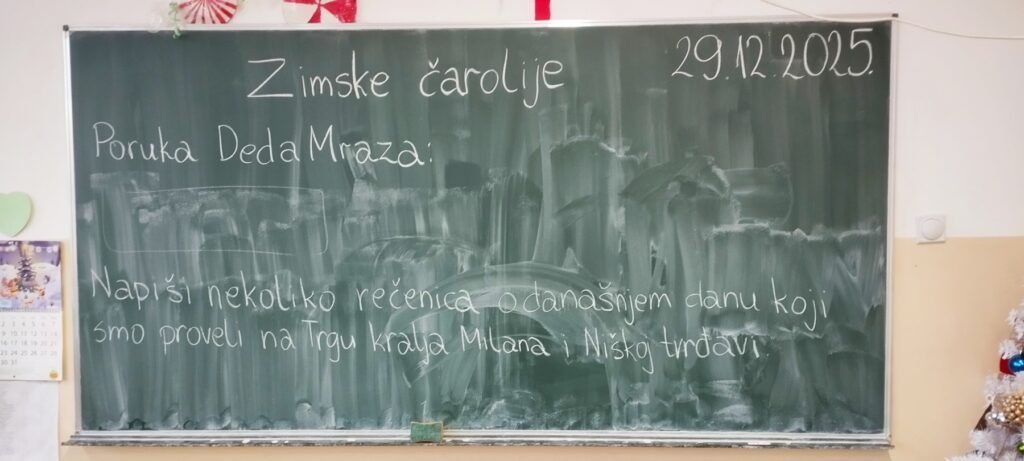 Zimske čarolije
29.12.2025.
Poruka Deda Mraza:
Napiši nekoliko rečenica o današnjem danu koji
smo proveli na Trgu kralja Milana i Niškoj tvrđavi.